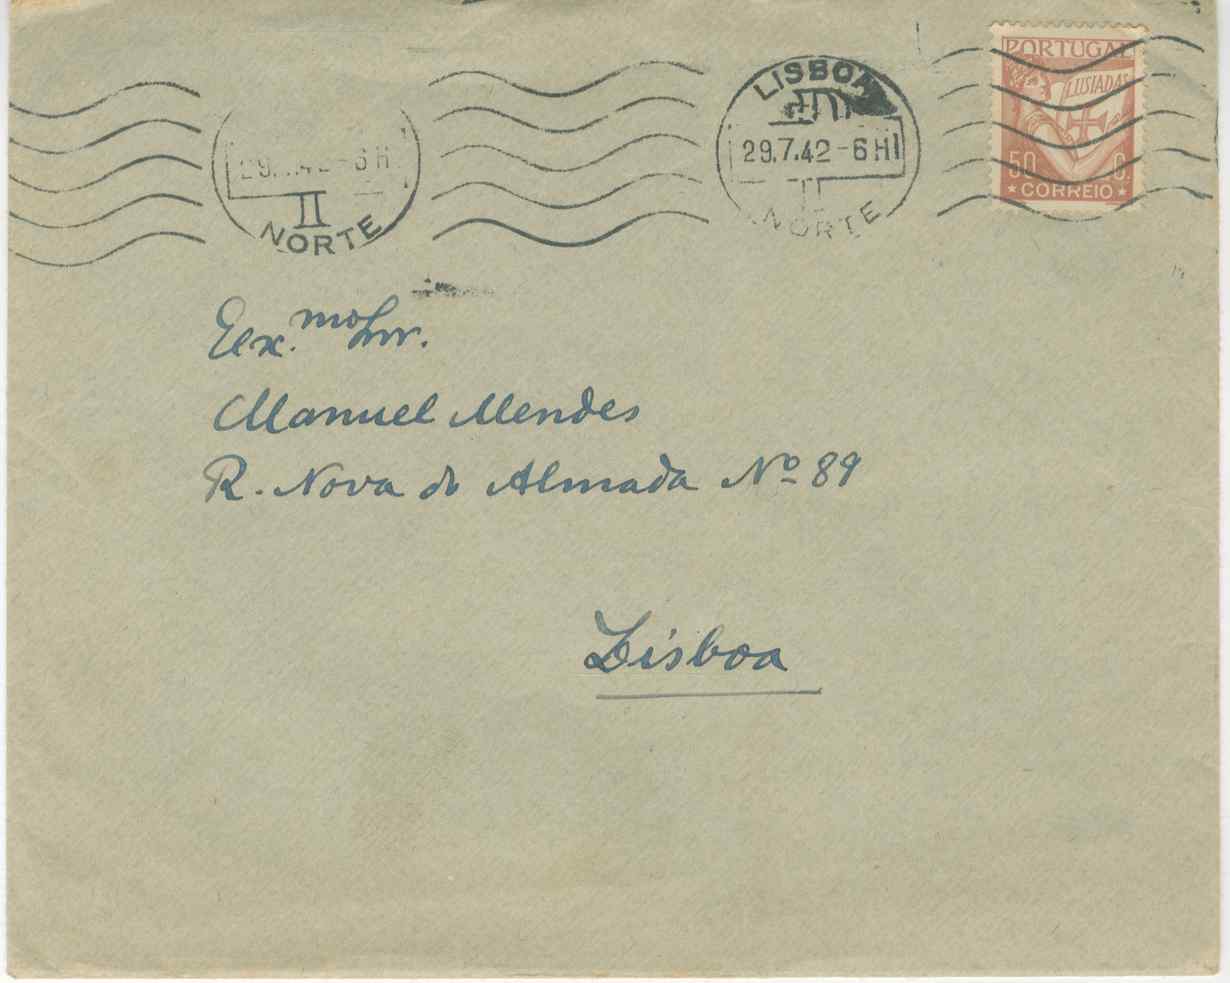 PORTUGAL
LUSIADAS
50 C.
★ CORREIO ★
LISBOA
29.7.42-6H
II
NORTE
29.7.42-6H
II
NORTE
Exc.mo Snr.
Manuel Mendes
R. Nova do Almada Nº 89
Lisboa